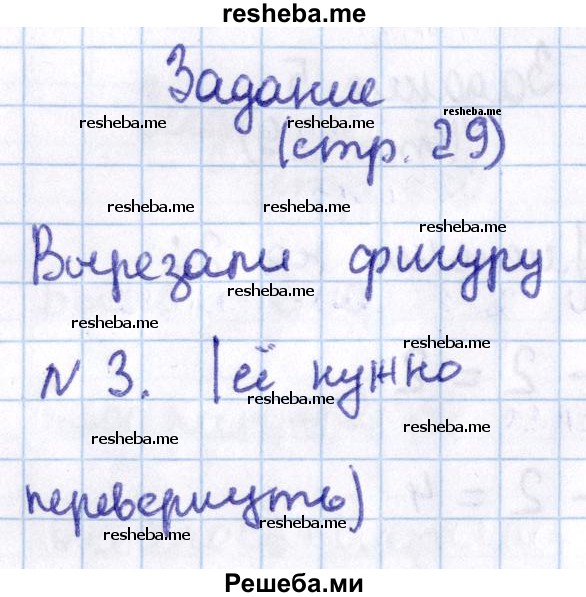 resheba.me
Задание
resheba.me resheba.me resheba.me
(стр. 29)
resheba.me resheba.me
resheba.me
Вырезали фигуру
resheba.me
resheba.me
resheba.me
N 3. (её нужно
resheba.me
resheba.me resheba.me
перевернуть)
resheba.me
resheba.me resheba.me
Решеба.ми